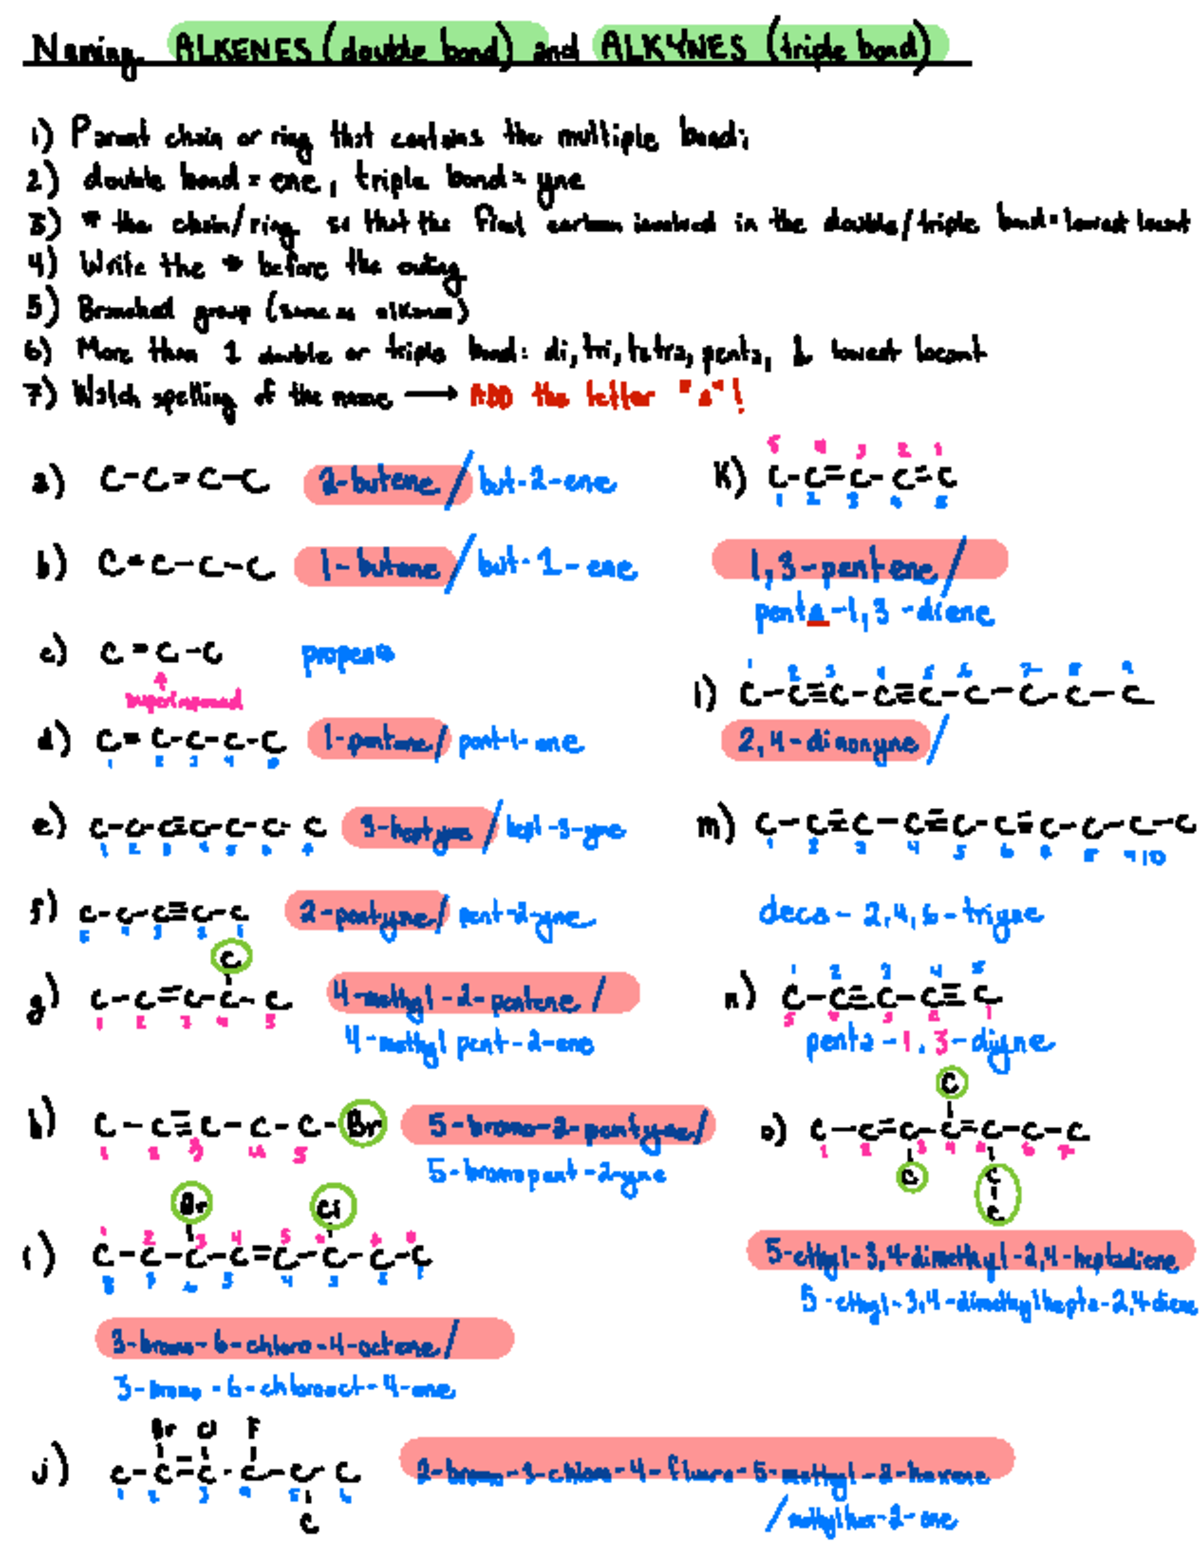 Naming ALKENES (double bond) and ALKYNES (triple bond)
1) Parent chain or ring that contains the multiple bond;
2) double bond = ene, triple bond = yne
3) # the chain/ring so that the first carbon involved in the double/triple bond = lowest locant
4) Write the # before the ending
5) Branched group (same as alkanes)
6) More than 1 double or triple bond: di, tri, tetra, penta, & lowest locant
7) Watch spelling of the name → ADD the letter "a"!
a) C-C=C-C 2-butene / but-2-ene
b) C=C-C-C 1-butene / but-1-ene
c) C=C-C propene
d) C=C-C-C-C 1-pentene / pent-1-ene
1 2 3 4 5
e) C-C-C≡C-C-C-C 3-heptyne / hept-3-yne
1 2 3 4 5 6 7
f) C-C-C≡C-C 2-pentyne / pent-2-yne
5 4 3 2 1
C
g) C-C=C-C-C 4-methyl-2-pentene /
1 2 3 4 5
4-methyl pent-2-ene
h) C-C≡C-C-C-Br 5-bromo-2-pentyne /
1 2 3 4 5
5-bromopent-2-yne
Br Cl
1 2 3 4 5 6 7 8
i) C-C-C-C=C-C-C-C
8 7 6 5 4 3 2 1
3-bromo-6-chloro-4-octene /
3-bromo-6-chlorooct-4-ene
Br Cl F
j) C-C=C-C-C-C 2-bromo-3-chloro-4-fluro-5-methyl-2-hexene
1 2 3 4 5 6
C
/methylhex-2-ene
5 4 3 2 1
K) C-C=C-C=C
1 2 3 4 5
1,3-pentene /
penta-1,3-diene
1 2 3 4 5 6 7 8 9
l) C-C≡C-C≡C-C-C-C-C
2,4-dinonyne /
m) C-C≡C-C≡C-C≡C-C-C-C
1 2 3 4 5 6 8 9 10
deca-2,4,6-triyne
1 2 3 4 5
n) C-C≡C-C≡C
5 4 3 2 1
penta-1,3-diyne
C
o) C-C=C-C=C-C-C
1 2 3 4 5 6 7
C C
C
5-ethyl-3,4-dimethyl-2,4-heptadiene
5-ethyl-3,4-dimethylhepta-2,4-diene